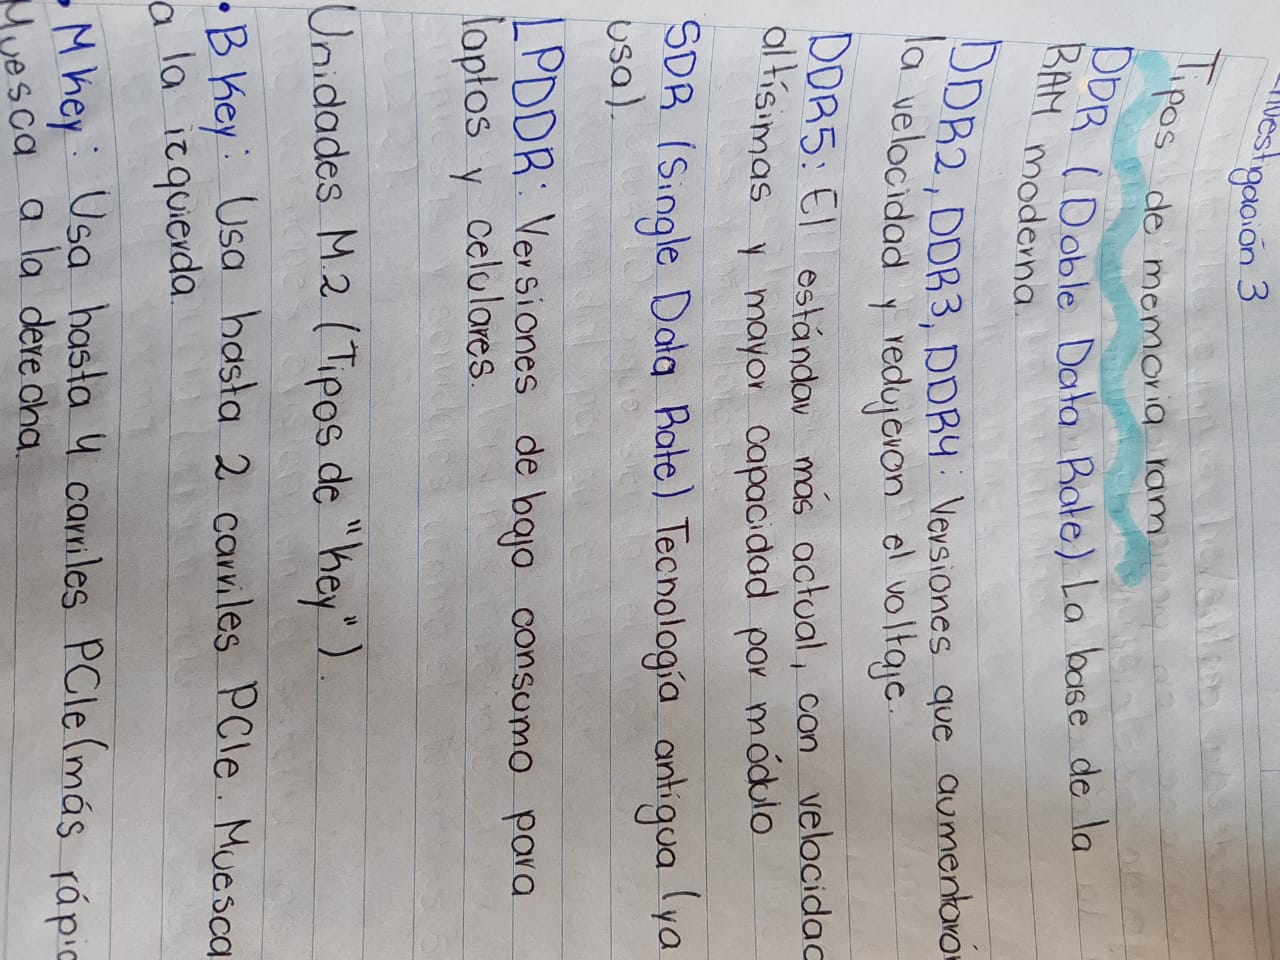 Investigación 3
Tipos de memoria ram
DDR (Doble Data Rate) La base de la
RAM moderna.
DDR2, DDR3, DDR4: Versiones que aumentaron
la velocidad y redujeron el voltaje.
DDR5: El estándar más actual, con velocidad
altísimas y mayor capacidad por módulo
SDR (Single Data Rate) Tecnología antigua (ya
usa).
LPDDR: Versiones de bajo consumo para
laptos y celulares.
Unidades M.2 (Tipos de "Key").
• B Key: Usa hasta 2 carriles PCIe. Muesca
a la izquierda.
• M Key: Usa hasta 4 carriles PCIe (más rápid
Muesca a la derecha.